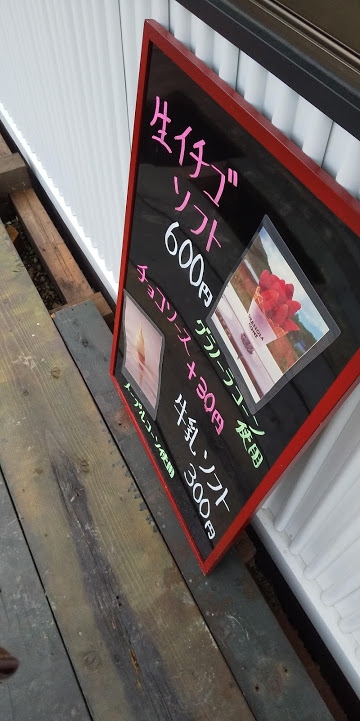 生イチゴ
ソフト
600円
グラノーラコーン
使用
チョコソース +30円
牛乳ソフト
300円
メープルコーン使用